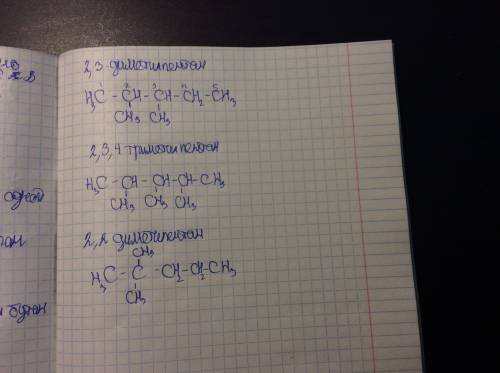 2,3 диметилпентан
1 2 3 4 5
H₃C - CH - CH - CH₂ - CH₃
CH₃ CH₃
2,3,4 триметилпентан
H₃C - CH - CH - CH - CH₃
CH₃ CH₃ CH₃
2,2 диметилпентан
CH₃
H₃C - C - CH₂ - CH₂ - CH₃
CH₃
бутан